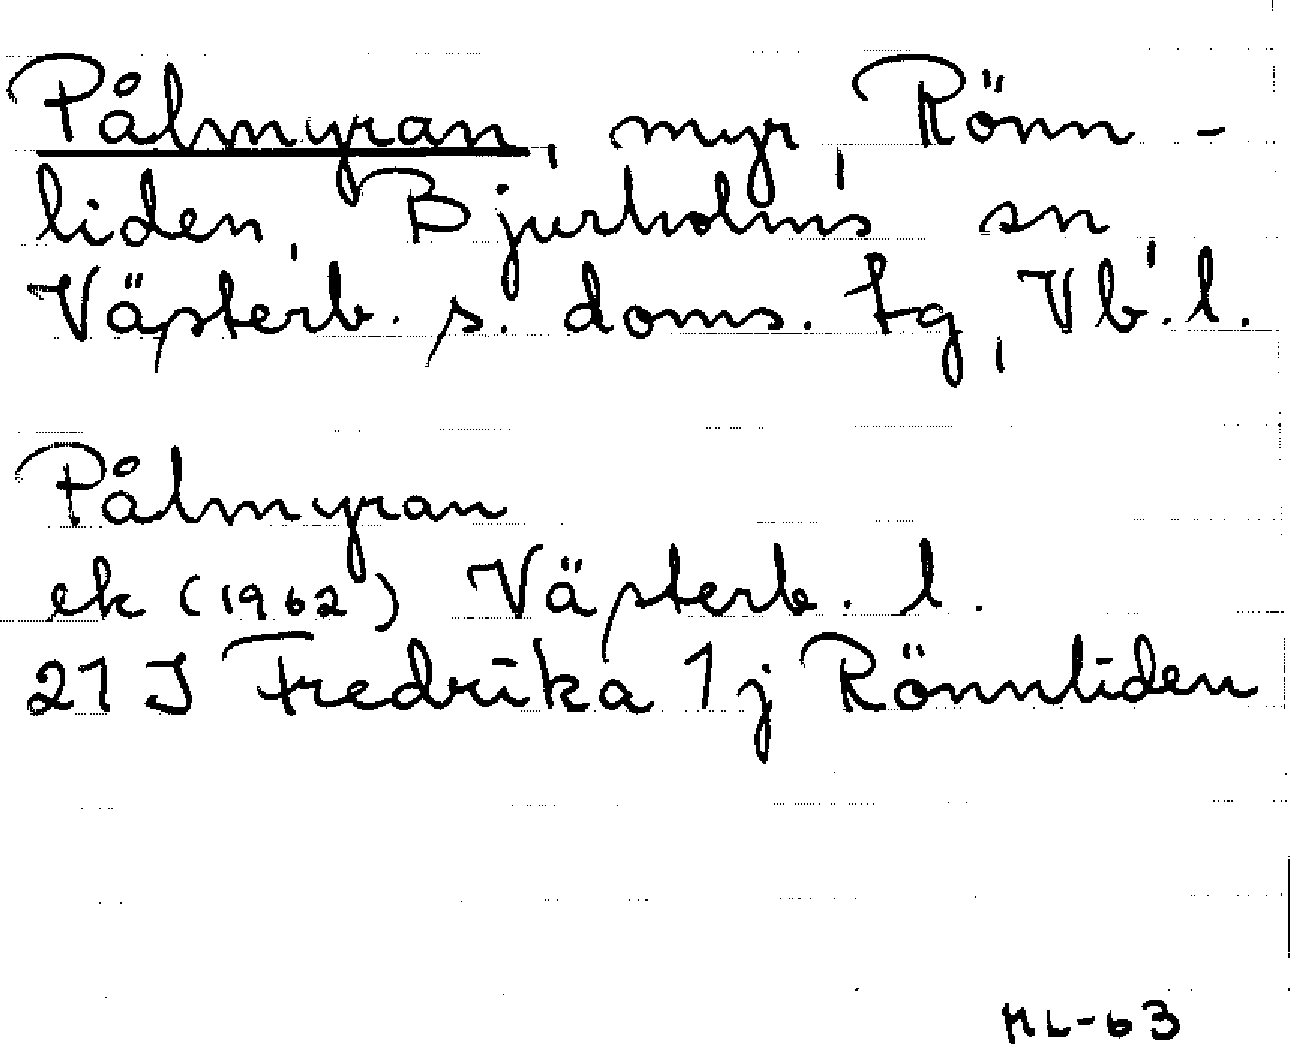 Pålmyran, myr, Rönn-
liden, Bjurholms sn,
Västerb. s. doms. tg, Vb. l.
Pålmyran
ek (1962) Västerb. l.
21 J Fredrika 1 j Rönnliden
ML-63